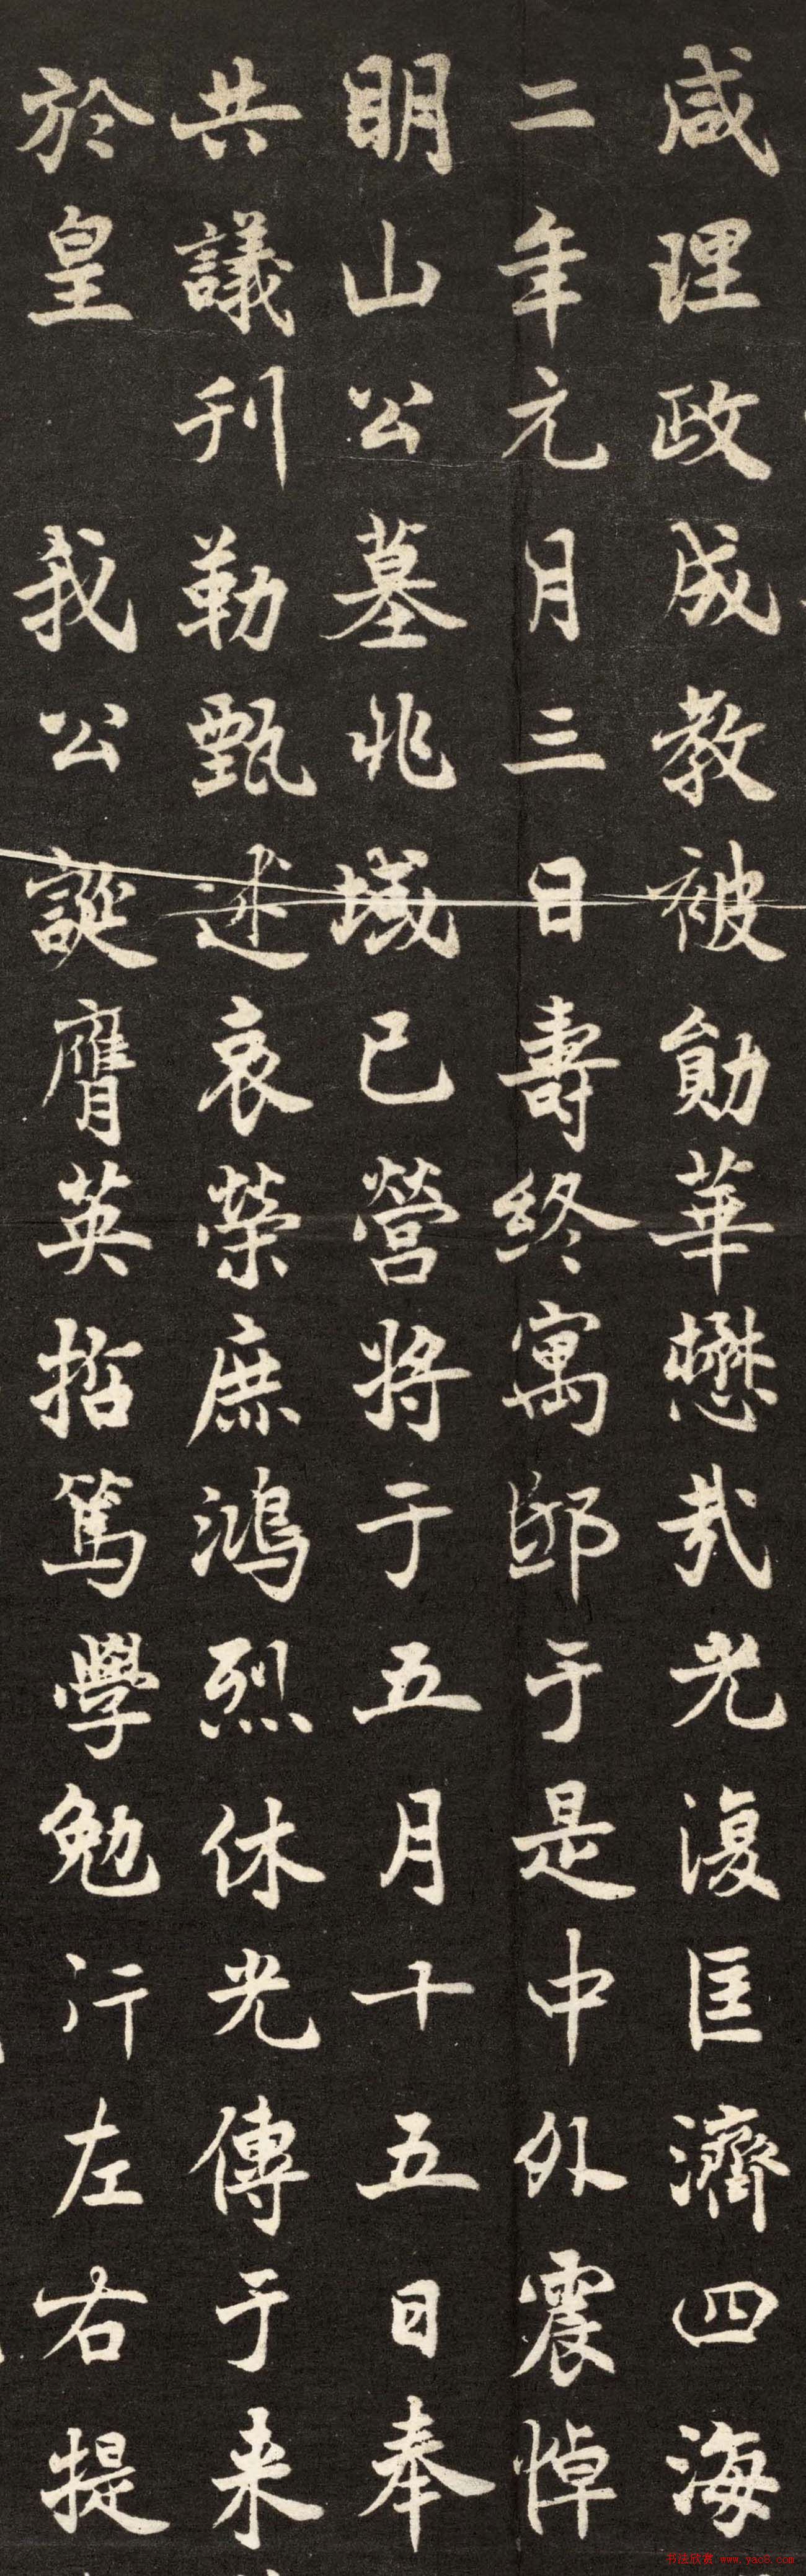 咸理政成教被勛華懋哉光復匡濟四海
二年元月三日壽終寓邸于是中外震悼
明山公墓兆域已營將于五月十五日奉
共議刊勒甄述哀榮庶鴻烈休光傳于来
於皇 我公誕膺英哲篤學勉行左右提
书法欣赏.www.yac8.com